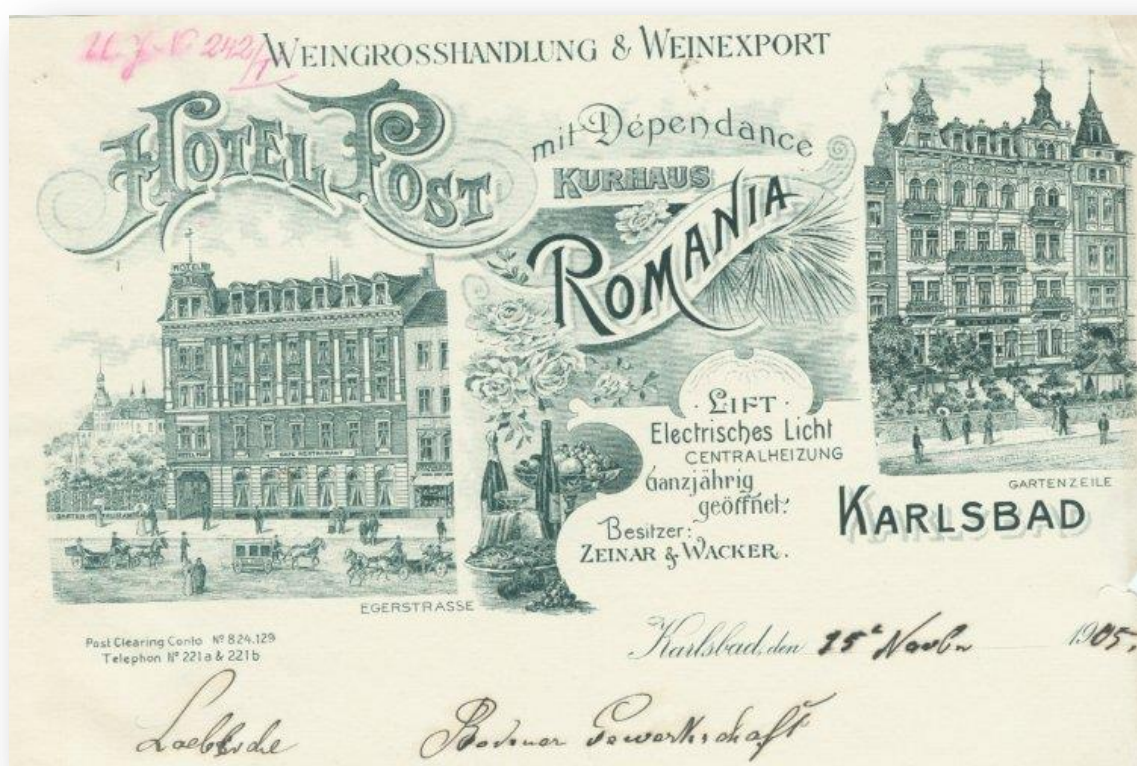 242/1
WEINGROSSHANDLUNG & WEINEXPORT
HOTEL POST
mit Dépendance
KURHAUS
ROMANIA
HOTEL
HOTEL POST
CAFE RESTAURANT
· LIFT ·
Electrisches Licht
CENTRALHEIZUNG
Ganzjährig
geöffnet.
Besitzer:
ZEINAR & WACKER.
GARTENZEILE
KARLSBAD
EGERSTRASSE
Post Clearing Conto Nº 824.129
Telephon Nº 221a & 221b
Karlsbad, den 15 1905.
Gewerkschaft